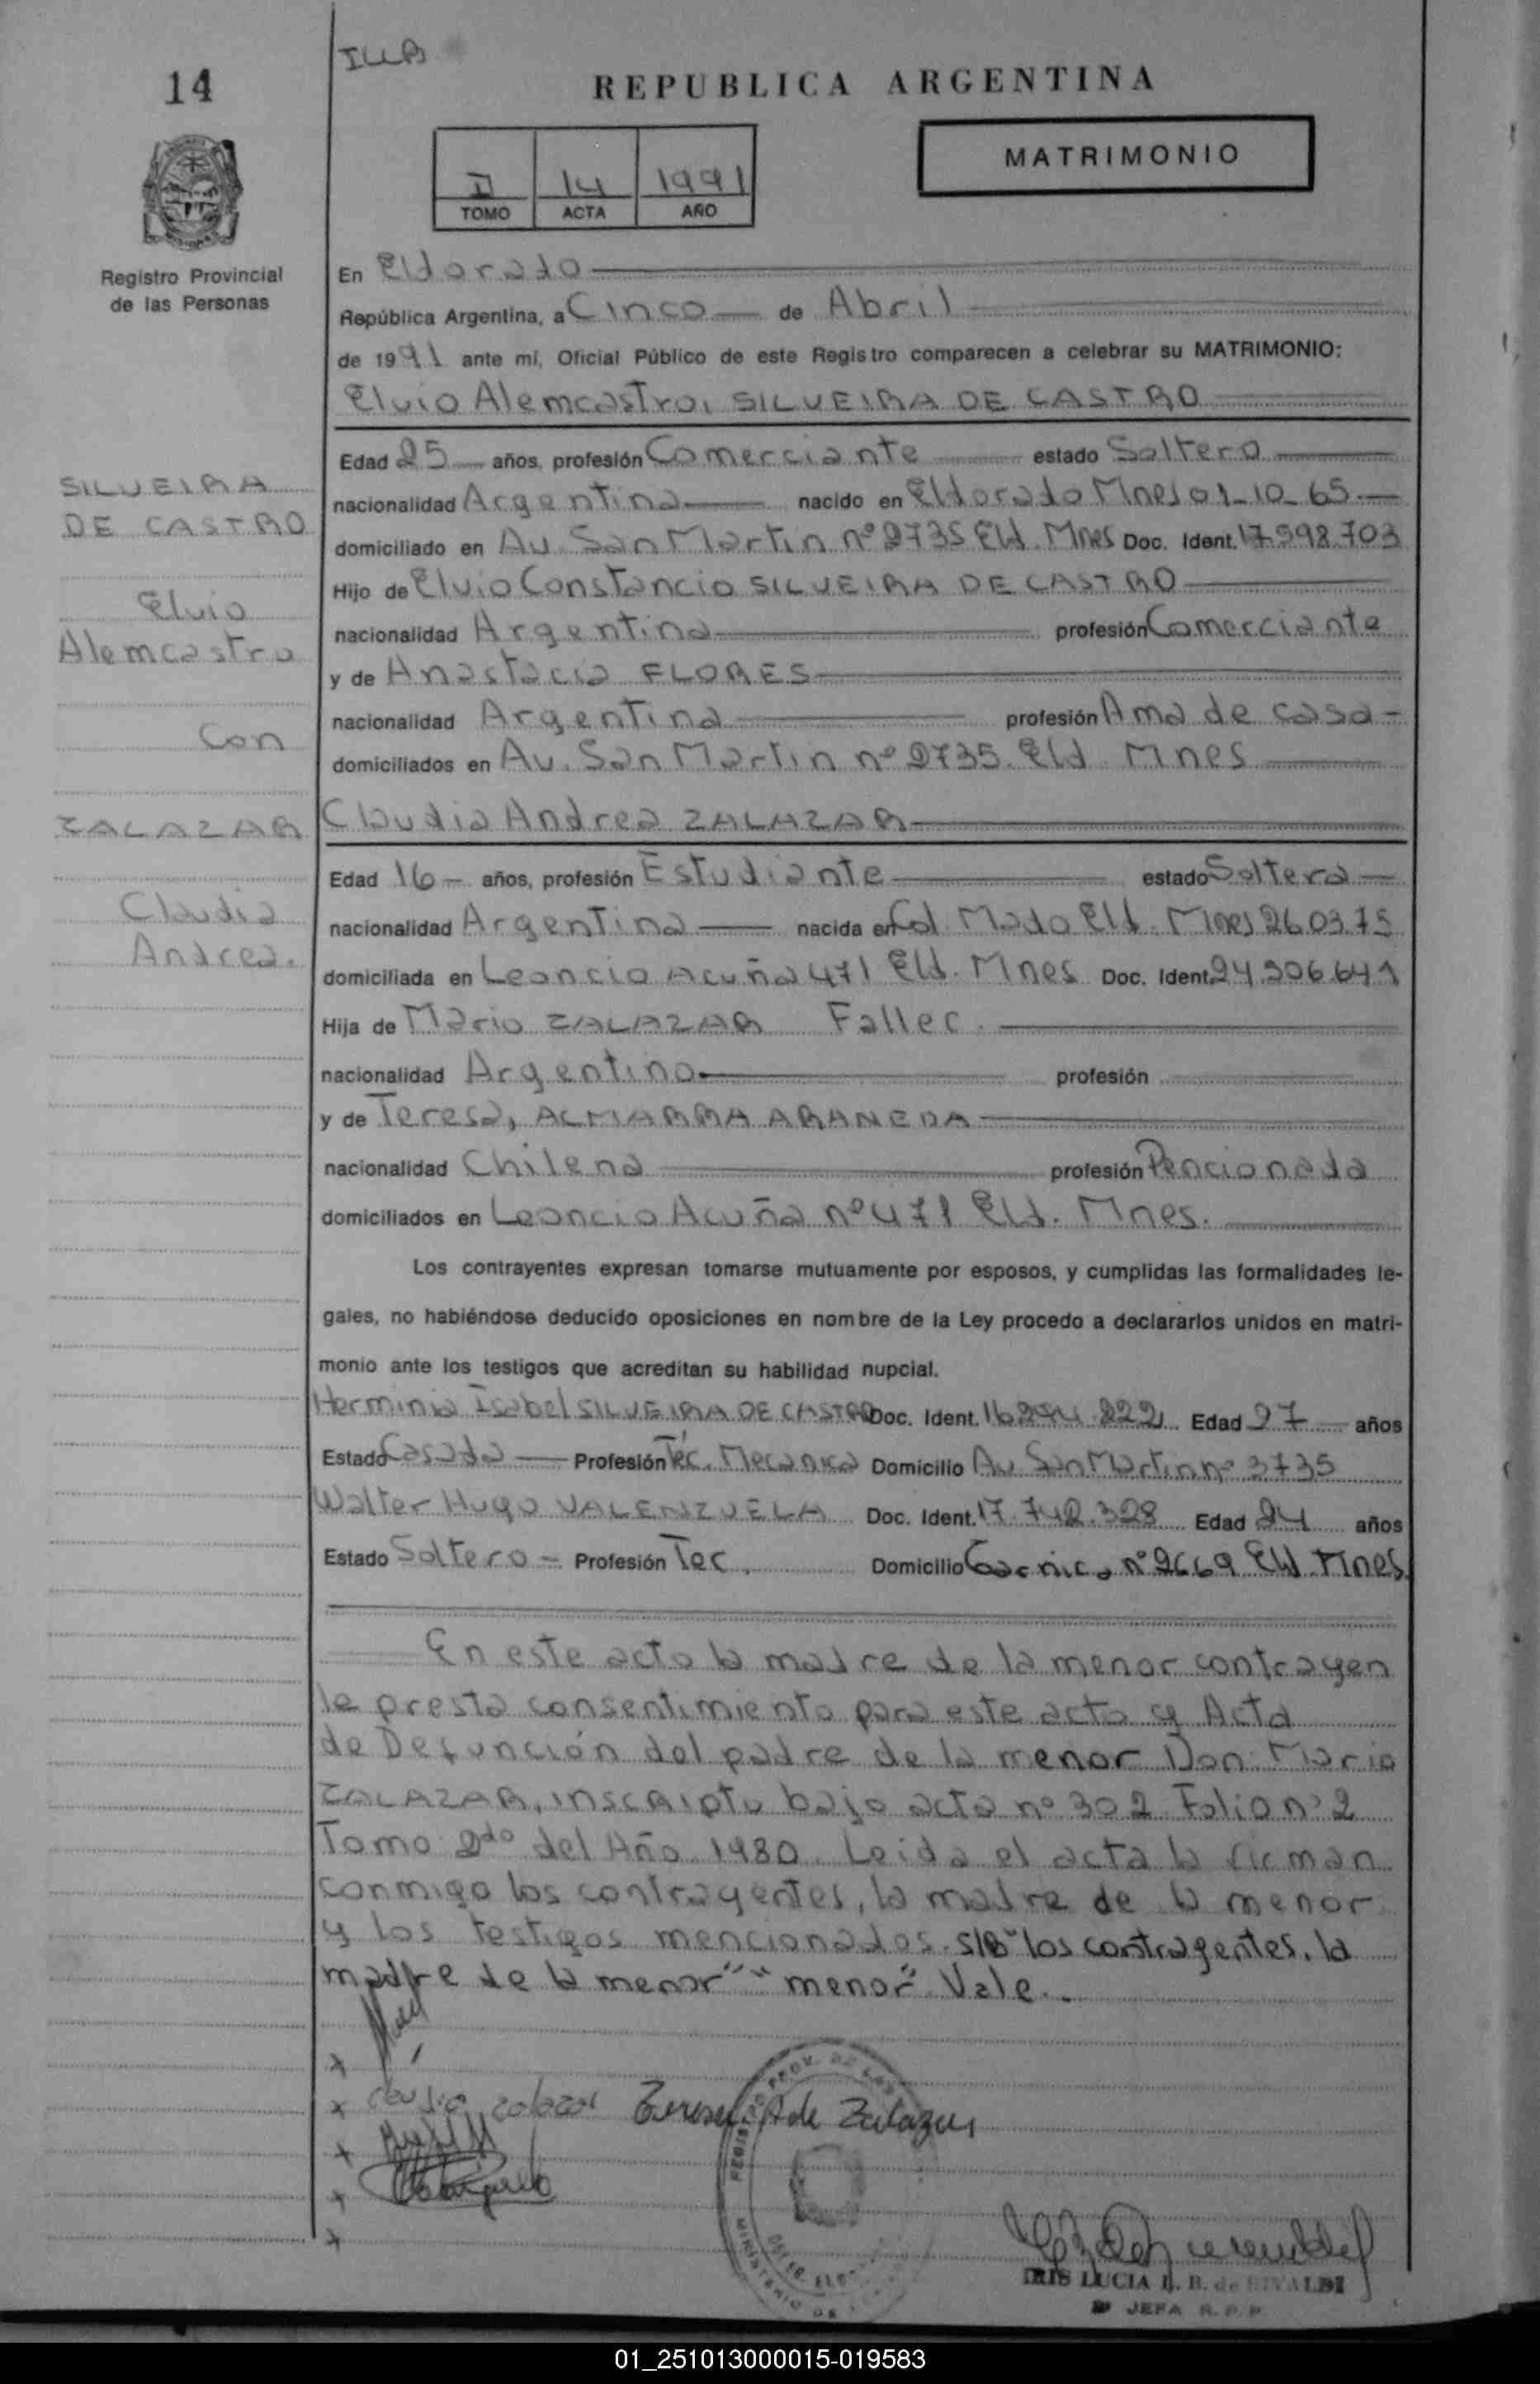 ILLB
14
REPUBLICA ARGENTINA
MATRIMONIO
II 14 1991
TOMO ACTA AÑO
Registro Provincial
de las Personas
En Eldorado
República Argentina, a Cinco de Abril
de 1991 ante mí, Oficial Público de este Registro comparecen a celebrar su MATRIMONIO:
Elvio Alemcastro, SILVEIRA DE CASTRO
Edad 25 años, profesión Comerciante estado Soltero
nacionalidad Argentina nacido en Eldorado Mnes 01-10-65
domiciliado en Av. San Martin nº 2735 Eld. Mnes Doc. Ident. 17.998.703
Hijo de Elvio Constancio SILVEIRA DE CASTRO
nacionalidad Argentina profesión Comerciante
y de Anastacia FLORES
nacionalidad Argentina profesión Ama de casa
domiciliados en Av. San Martin nº 2735. Eld. Mnes
Claudia Andrea ZALAZAR
SILVEIRA
DE CASTRO
Elvio
Alemcastro
Con
ZALAZAR
Claudia
Andrea.
Edad 16 años, profesión Estudiante estado Soltera
nacionalidad Argentina nacida en Col. Mado Eld. Mnes 26.03.75
domiciliada en Leoncio Acuña 471 Eld. Mnes Doc. Ident. 24.506.641
Hija de Mario ZALAZAR Fallec.
nacionalidad Argentino profesión
y de Teresa, ARANEDA
nacionalidad Chilena profesión Pencionada
domiciliados en Leoncio Acuña nº 471 Eld. Mnes.
Los contrayentes expresan tomarse mutuamente por esposos, y cumplidas las formalidades le-
gales, no habiéndose deducido oposiciones en nombre de la Ley procedo a declararlos unidos en matri-
monio ante los testigos que acreditan su habilidad nupcial.
Herminia Isabel SILVEIRA DE CASTRO Doc. Ident. Edad 27 años
Estado Casada Profesión Téc. Mecanica Domicilio Av San Martin nº 3735
Walter Hugo VALENZUELA Doc. Ident. 17.742.328 Edad 24 años
Estado Soltero Profesión Tec. Domicilio nº 2669 Eld. Mnes.
En este acto la madre de la menor contrayen
te presta consentimiento para este acto y Acta
de Defunción del padre de la menor Don Mario
ZALAZAR, inscripto bajo acta nº 302 Folio nº 2
Tomo 2do del Año 1980. Leida el acta la firman
conmigo los contrayentes, la madre de la menor
y los testigos mencionados. S/B "los contrayentes, la
madre de la menor" "menor" Vale.
Claudia zalazar Teresa A de Zalazar
IRIS LUCIA L. R. de RIVALDI
JEFA R. P. P.
01_251013000015-019583